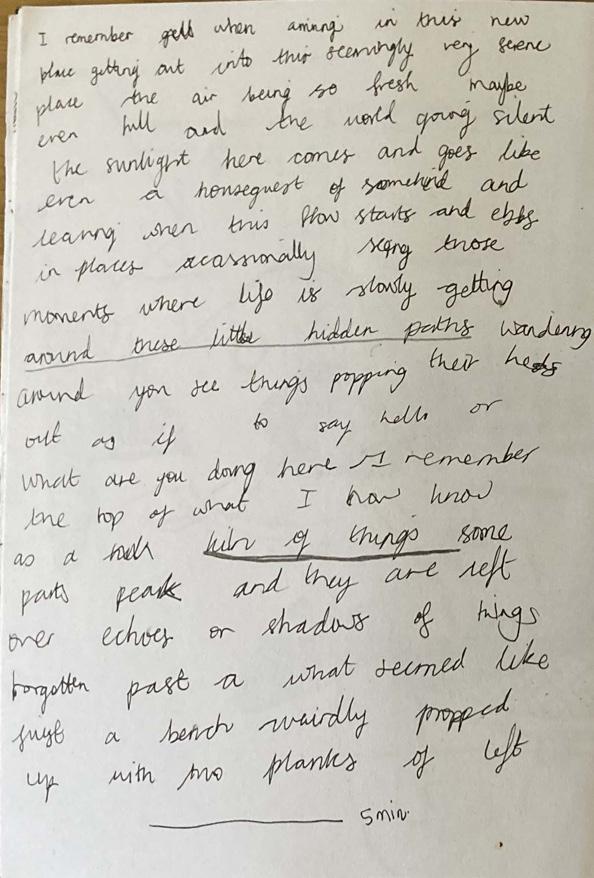 I remember when arriving in this new
place getting out into this seemingly very serene
place the air being so fresh maybe
even hill and the world going silent
the sunlight here comes and goes like
even a houseguest of somekind and
leaving when this flow starts and ebbs
in places occassionally seeing those
moments where life is slowly getting
around these little hidden paths wandering
around you see things popping their heads
out as if to say hello or
what are you doing here I remember
the top of what I now know
as a kiln of things some
parts peak and they are left
over echoes or shadows of things
forgotten past a what seemed like
just a bench weirdly propped
up with two planks of left
5 min.